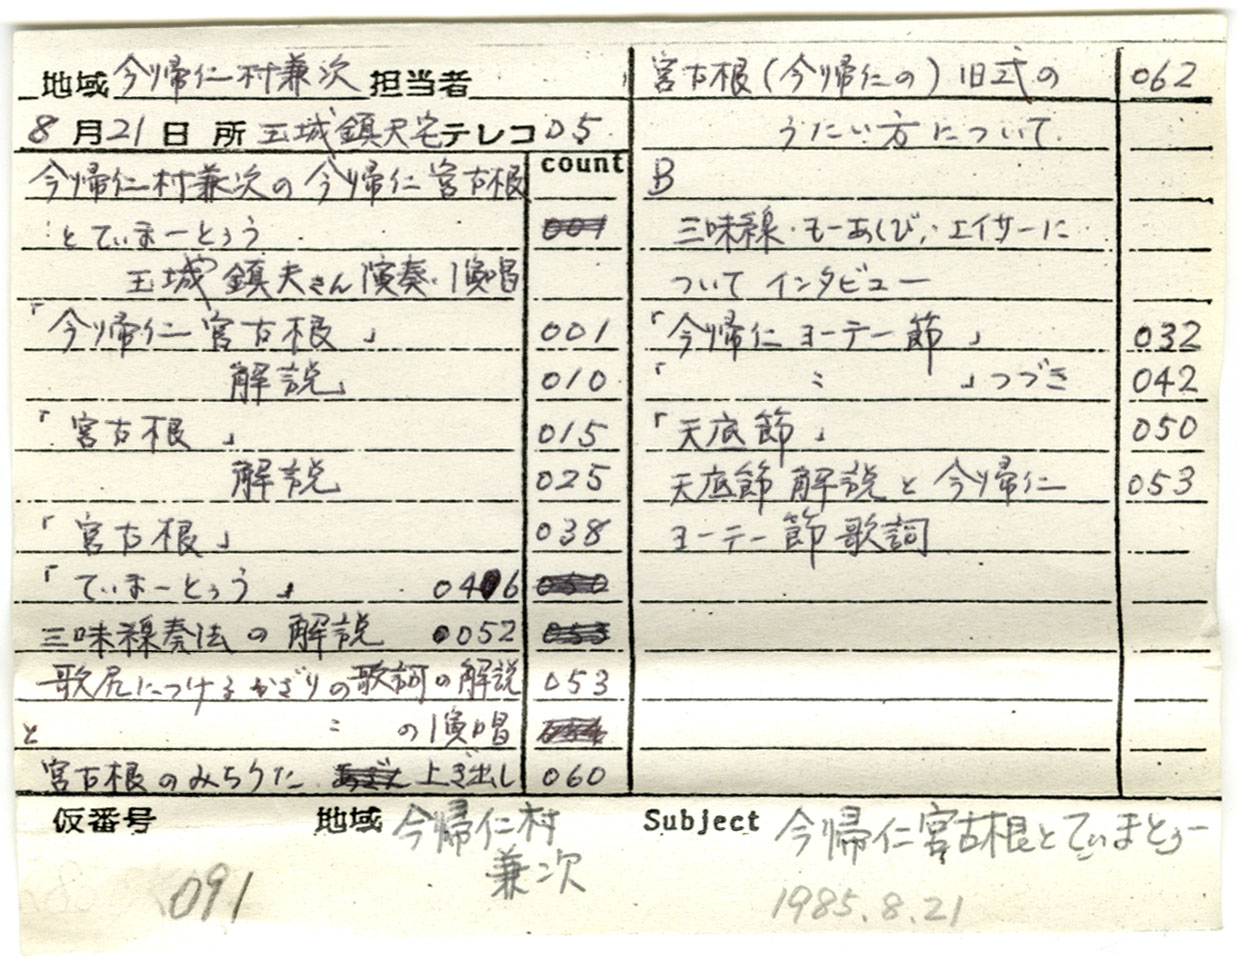 地域 今帰仁村兼次 担当者
8月21日 所 玉城鎮夫宅 テレコ 05
count
今帰仁村兼次の今帰仁宮古根
とてぃまーとぅう
玉城鎮夫さん演奏・演唱
「今帰仁宮古根」 001
解説」 010
「宮古根」 015
解説 025
「宮古根」 038
「てぃまーとぅう」 046
三味線奏法の解説 0052
歌尻につけるかざりの歌詞の解説 053
と 〃 の演唱
宮古根のみちうた 上ぎ出し 060
宮古根(今帰仁の)旧式の 062
うたい方について
B
三味線・もーあしび,・エイサーに
ついてインタビュー
「今帰仁ヨーテー節」 032
「 〃 」つづき 042
「天底節」 050
天底節解説と今帰仁 053
ヨーテー節歌詞
仮番号 091
地域 今帰仁村
兼次
Subject 今帰仁宮古根とてぃまとぅー
1985.8.21